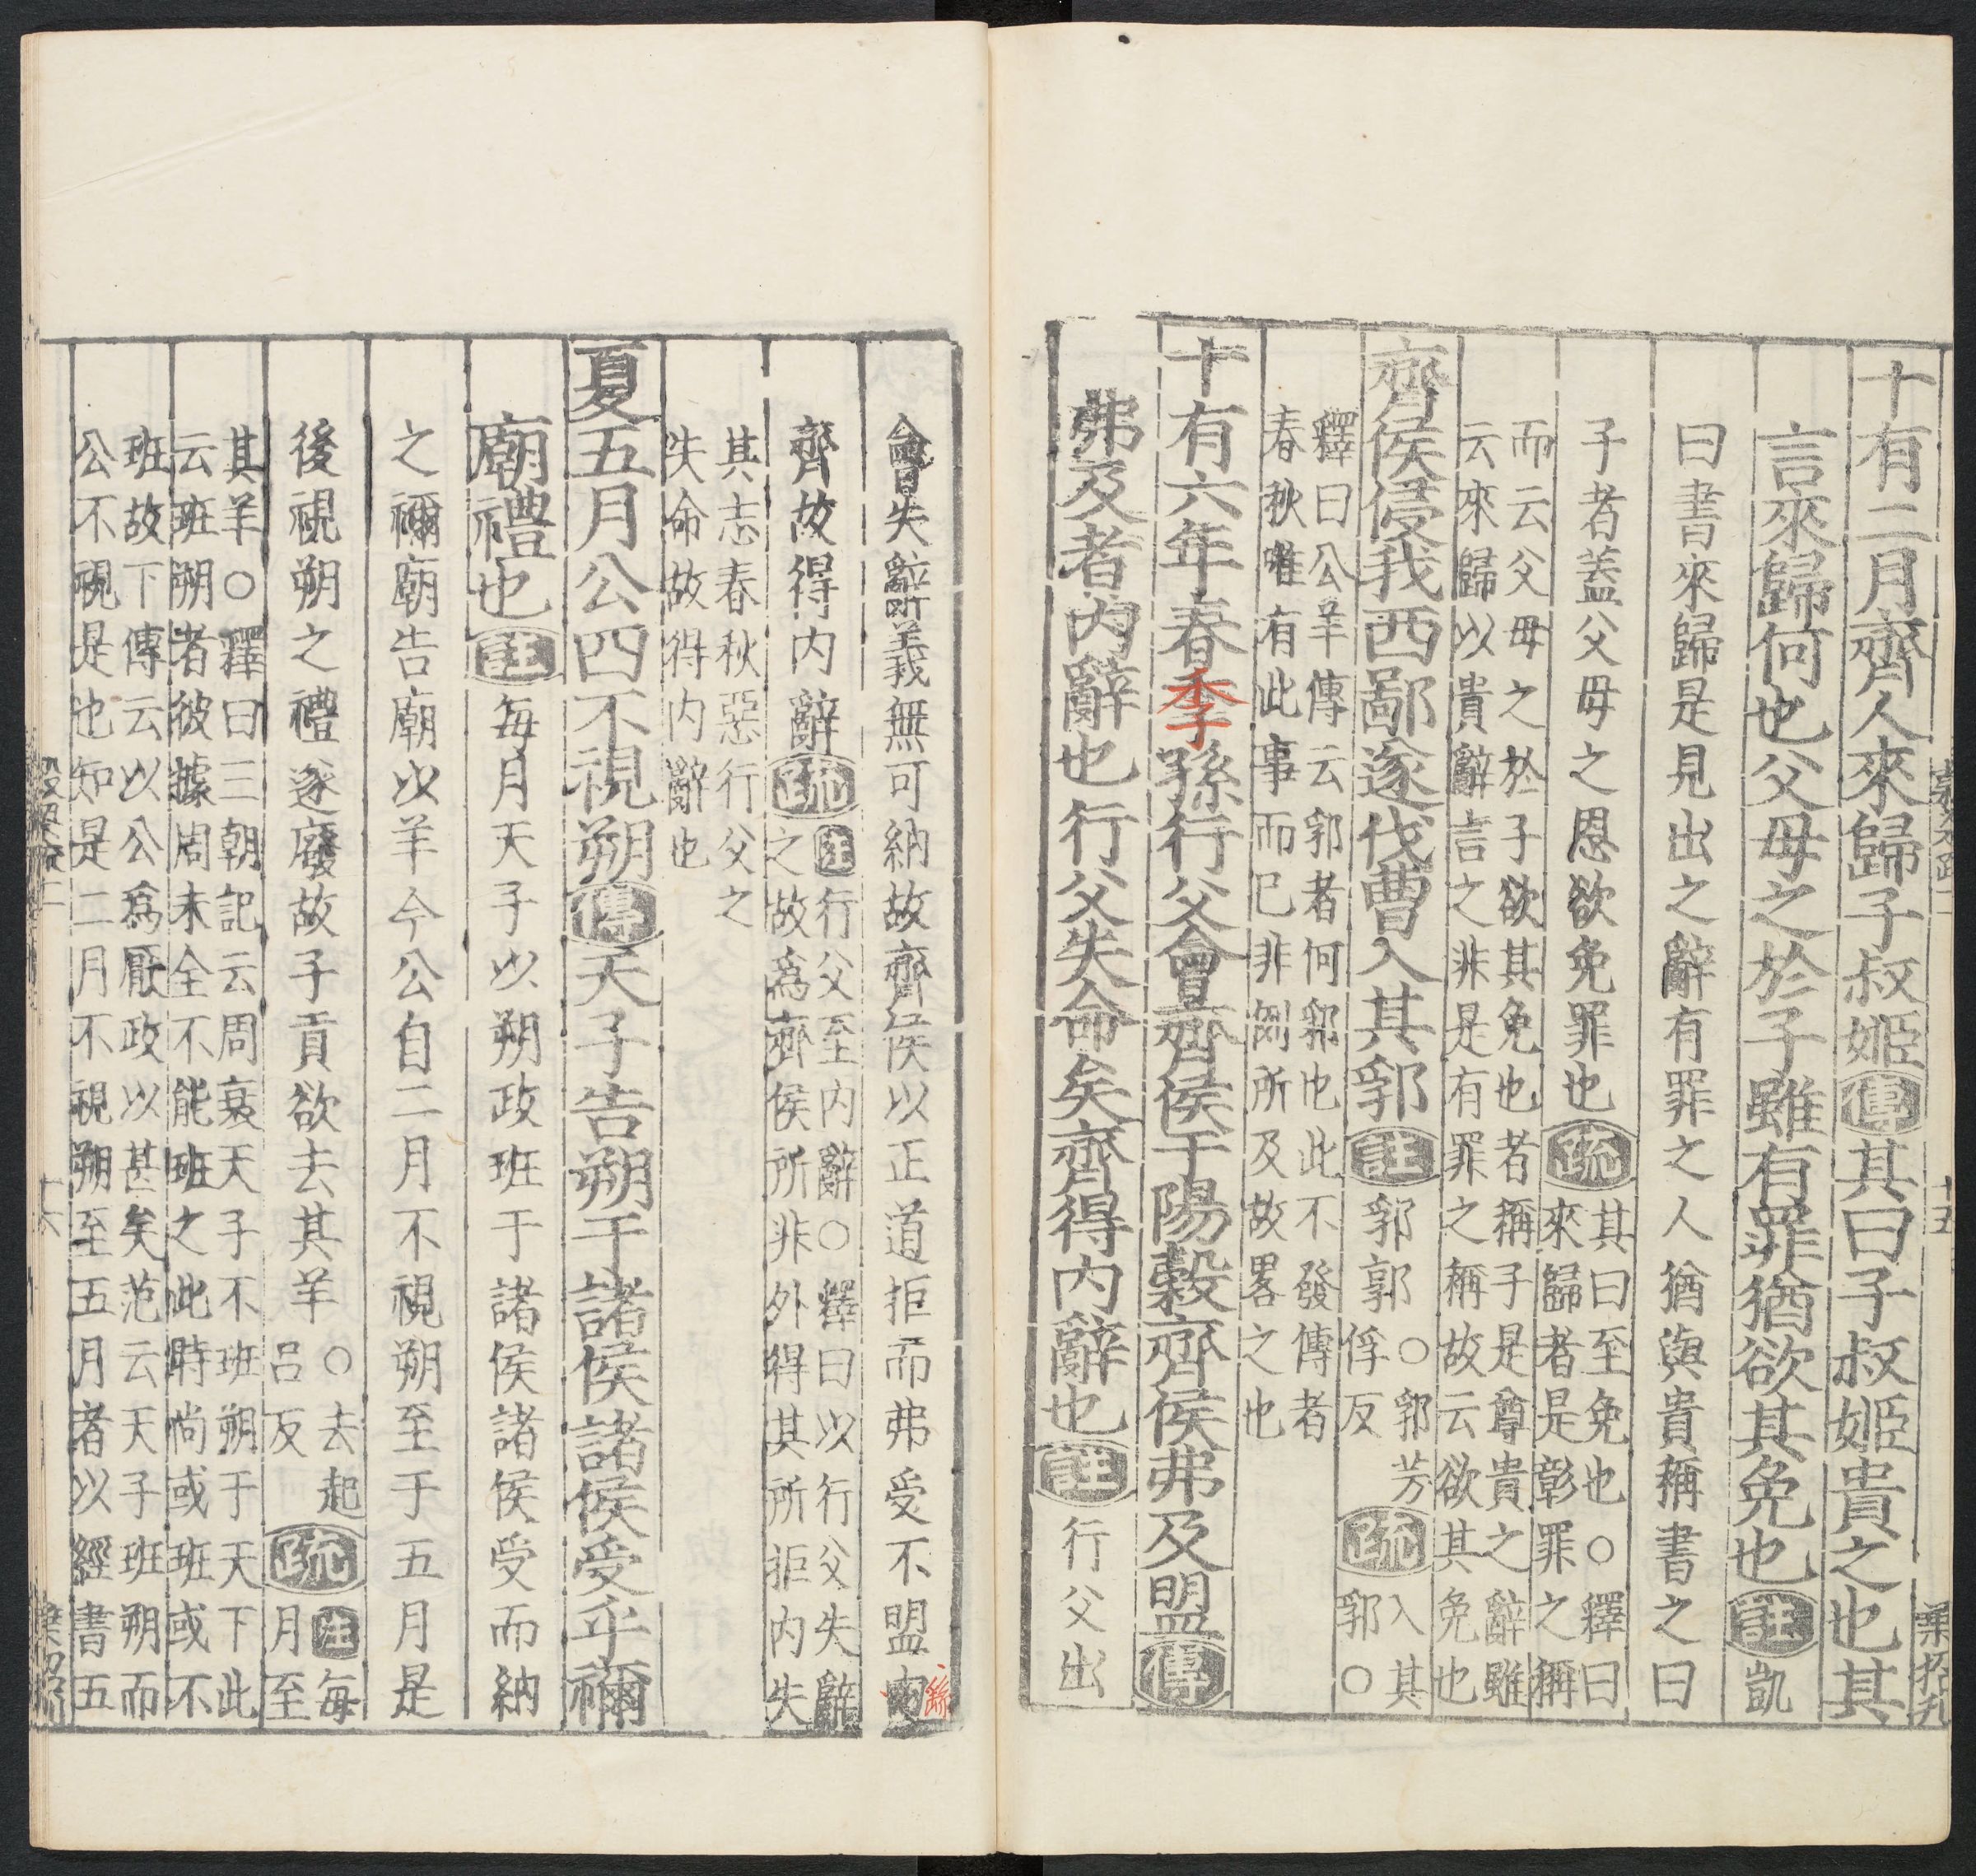 十有二月齊人來歸子叔姬傳其曰子叔姬貴之也其
言來歸何也父母之於子雖有罪猶欲其免也註凱
曰書來歸是見出之辭有罪之人猶與貴稱書之曰
子者蓋父母之恩欲免罪也疏其曰至免也○釋曰
來歸者是彰罪之稱
而云父母之於子欲其免也者稱子是尊貴之辭雖
云來歸以貴辭言之非是有罪之稱故云欲其免也
齊侯侵我西鄙遂伐曹入其郛註郛郭○郛芳
俘反疏入其
郛○
釋曰公羊傳云郛者何郭也此不發傳者
春秋唯有此事而已非例所及故畧之也
十有六年春季孫行父會齊侯于陽穀齊侯弗及盟傳
弗及者內辭也行父失命矣齊得內辭也註行父出
會失辭義無可納故齊侯以正道拒而弗受不盟由
齊故得內辭疏註行父至內辭○釋曰以行父失辭
之故為齊侯所非外得其所拒內失
其志春秋惡行父之
失命故得內辭也
夏五月公四不視朔傳天子告朔于諸侯諸侯受乎禰
廟禮也註每月天子以朔政班于諸侯諸侯受而納
之禰廟告廟以羊今公自二月不視朔至于五月是
後視朔之禮遂廢故子貢欲去其羊○去起
呂反疏註每
月至
其羊○釋曰三朝記云周衰天子不班朔于天下此
云班朔者彼據周末全不能班之此時尚或班或不
班故下傳云以公為厭政以甚矣范云天子班朔而
公不視是也知是二月不視朔至五月者以經書五